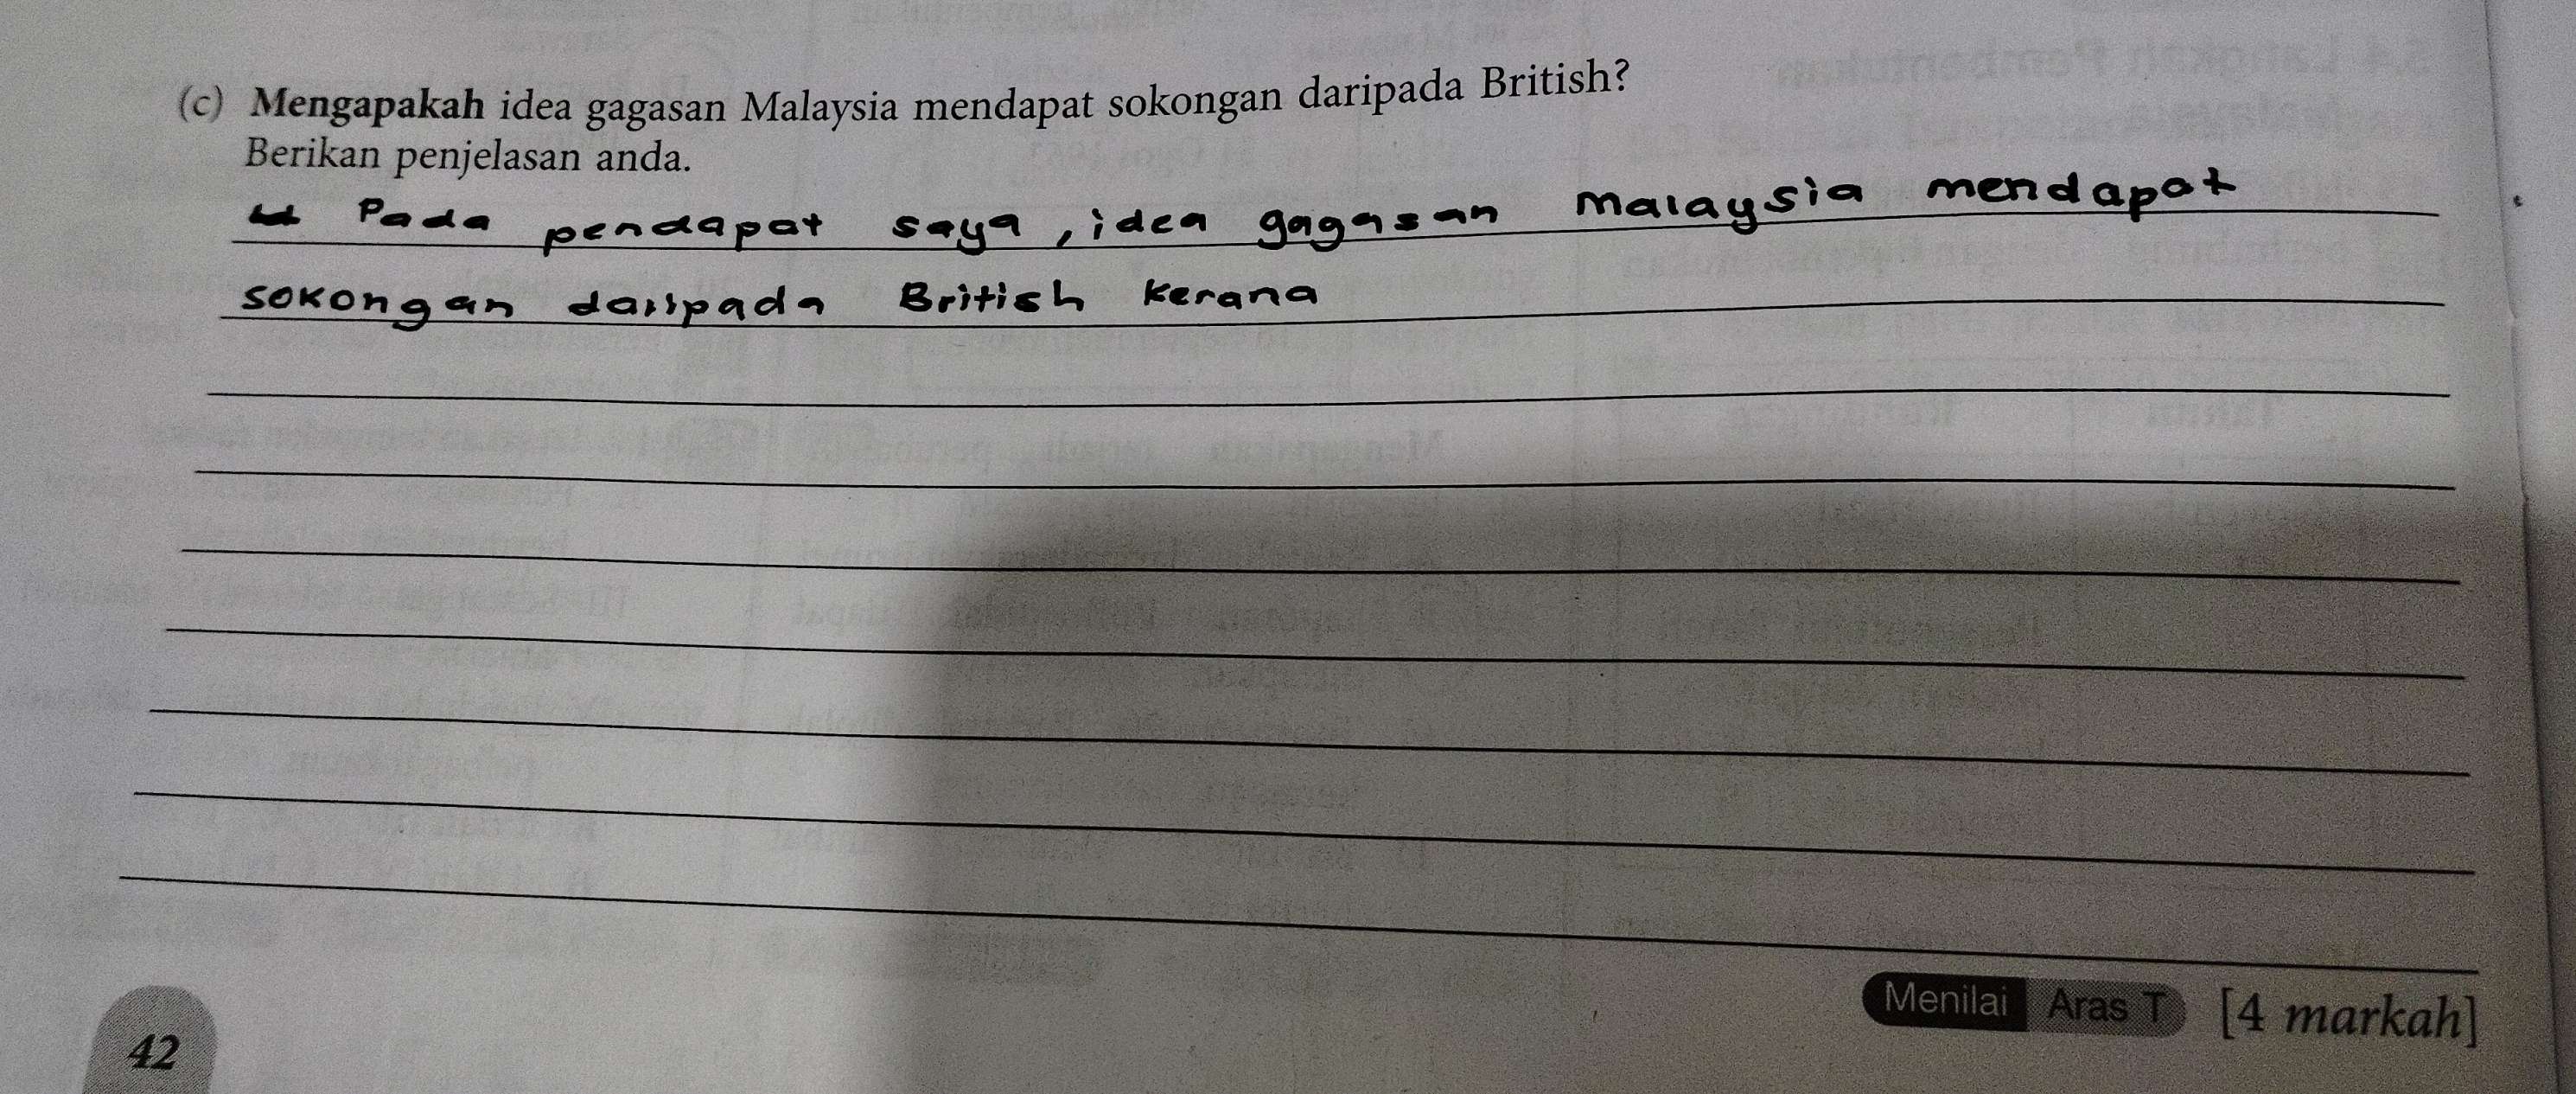 (c) Mengapakah idea gagasan Malaysia mendapat sokongan daripada British?
Berikan penjelasan anda.
Pada pendapat saya, idea gagasan Malaysia mendapat
sokongan daripada British kerana
Menilai Aras T [4 markah]
42